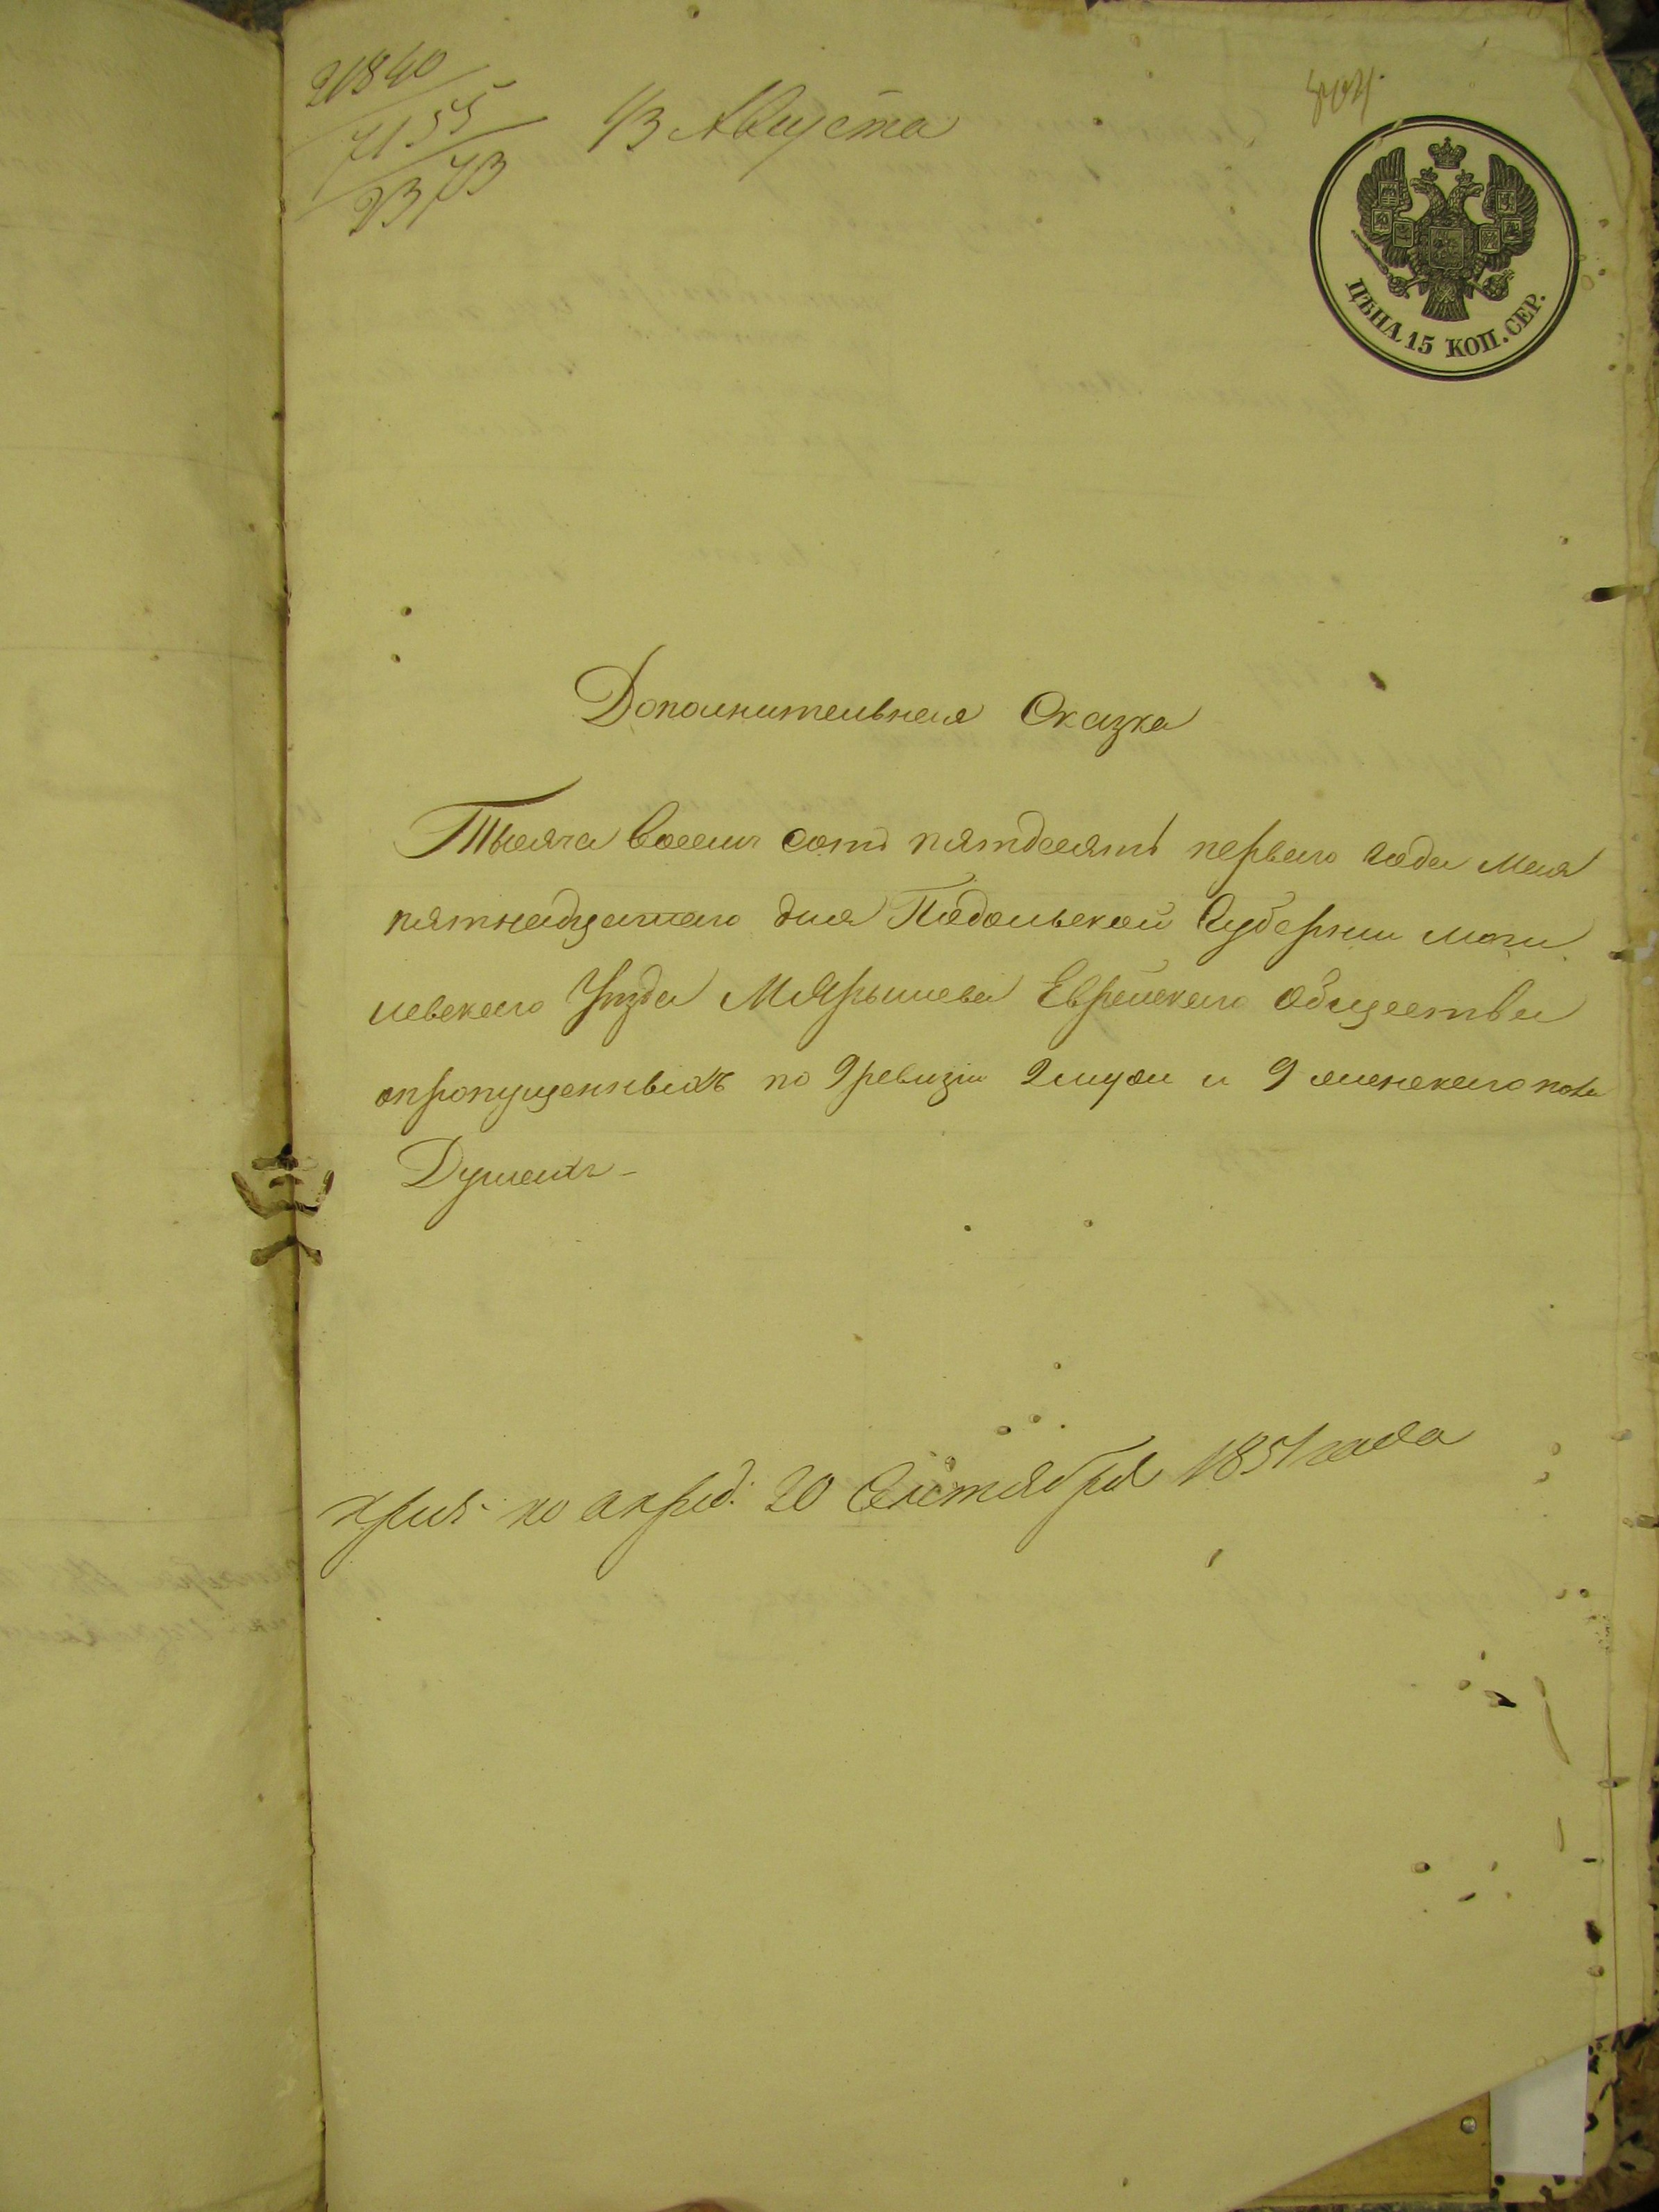 21840
7155
2373
13 Августа
ЦѢНА 15 КОП. СЕР.
Дополнительная Сказка
Тысяча восемь сотъ пятдесятъ перваго года Мая
пятнадцатаго дня Подольской Губернии Моги
левского Уѣзда М Ярышева Еврейскаго общества
опропущенныхъ по 9 ревизіи 2 муж и 9 женскаго пола
Душахъ
по 20 Сентября 1851 года